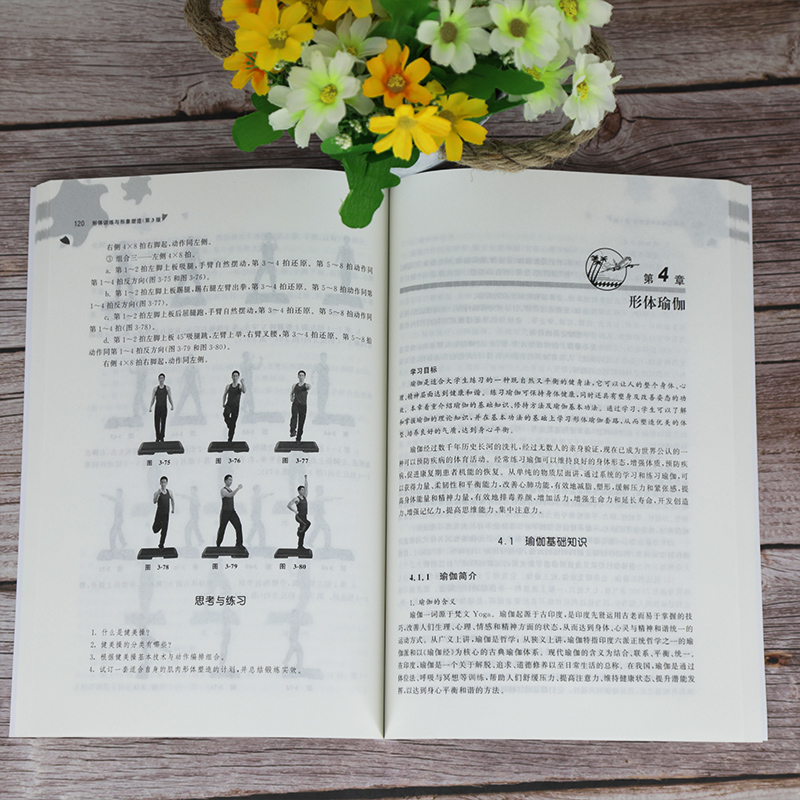 120 形体训练与形象塑造(第3版)
右侧4×8拍右脚起,动作同左侧。
③ 组合三——左侧4×8拍。
a. 第1～2拍左脚上板吸腿,手臂自然摆动,第3～4拍还原。第5～8拍动作同
第1～4拍反方向(图3-75和图3-76)。
b. 第1～2拍左脚上板踢腿,踢右腿左臂出拳,第3～4拍还原。第5～8拍动作同第
1～4拍反方向(图3-77)。
c. 第1～2拍左脚上板后屈腿跑,手臂自然摆动,第3～4拍还原。第5～8拍动作同
第1～4拍(图3-78)。
d. 第1～2拍左脚上板45°吸腿跳,左臂上举,右臂叉腰,第3～4拍还原。第5～8拍
动作同第1～4拍反方向(图3-79和图3-80)。
右侧4×8拍右脚起,动作同左侧。
图 3-75
图 3-76
图 3-77
图 3-78
图 3-79
图 3-80
思考与练习
1. 什么是健美操?
2. 健美操的分类有哪些?
3. 根据健美操基本技术与动作编排组合。
4. 试订一套适合自身的肌肉形体塑造的计划,并总结锻炼实效。
第4章
形体瑜伽
学习目标
瑜伽是适合大学生练习的一种既自然又平衡的健身法,它可以让人的整个身体、心
理、精神层面达到健康和谐。练习瑜伽可保持身体健康,同时还具有塑身及改善姿态的功
能。本章着重介绍瑜伽的基础知识、修持方法及瑜伽基本功法。通过学习,学生可以了解
和掌握瑜伽的理论知识,并在基本功法的基础上学习形体瑜伽套路,从而塑造优美的体
型,培养良好的气质,达到身心平衡。
瑜伽经过数千年历史长河的洗礼,经过无数人的亲身验证,现在已成为世界公认的一
种可以预防疾病的体育活动。经常练习瑜伽可以维持良好的身体形态,增强体质,预防疾
病,促进康复期患者机能的恢复。从单纯的物质层面讲,通过系统的学习和练习瑜伽,可
以获得力量、柔韧性和平衡能力,改善心肺功能,有效地减脂、塑形,缓解压力和紧张感,提
高身体能量和精神力量,有效地排毒养颜,增加活力,增强生命力和延长寿命,开发创造
力,增强记忆力,提高思维能力、集中注意力。
4.1 瑜伽基础知识
4.1.1 瑜伽简介
1. 瑜伽的含义
瑜伽一词源于梵文 Yoga。瑜伽起源于古印度,是印度先哲运用古老而易于掌握的技
巧,改善人们生理、心理、情感和精神方面的状态,从而达到身体、心灵与精神和谐统一的
运动方式。从广义上讲,瑜伽是哲学;从狭义上讲,瑜伽特指印度六派正统哲学之一的瑜
伽派和以《瑜伽经》为核心的古典瑜伽体系。现代瑜伽的含义为结合、联系、平衡、统一。
在印度,瑜伽是一个关于解脱、追求、道德修养以至日常生活的总称。在我国,瑜伽是通过
体位法、呼吸与冥想等训练,帮助人们舒缓压力、提高注意力、维持健康状态、提升潜能发
挥,以达到身心平衡和谐的方法。